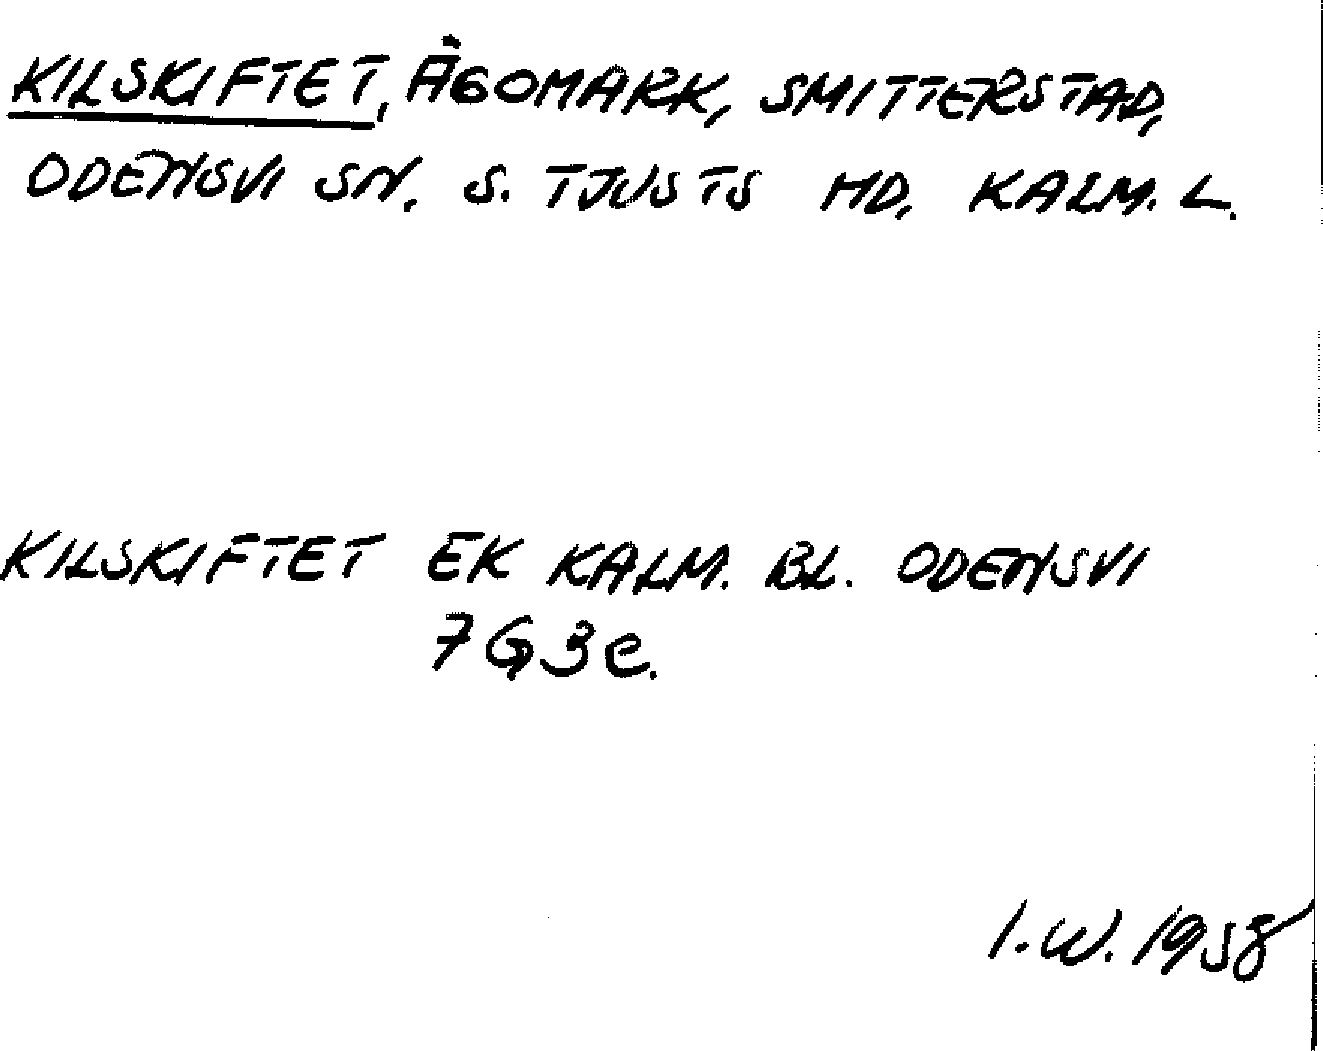 KILSKIFTET, ÄGOMARK, SMITTERSTAD,
ODENSVI SN. S. TJUSTS HD. KALM. L.
KILSKIFTET EK KALM. BL. ODENSVI
7G3c.
I.W. 1958